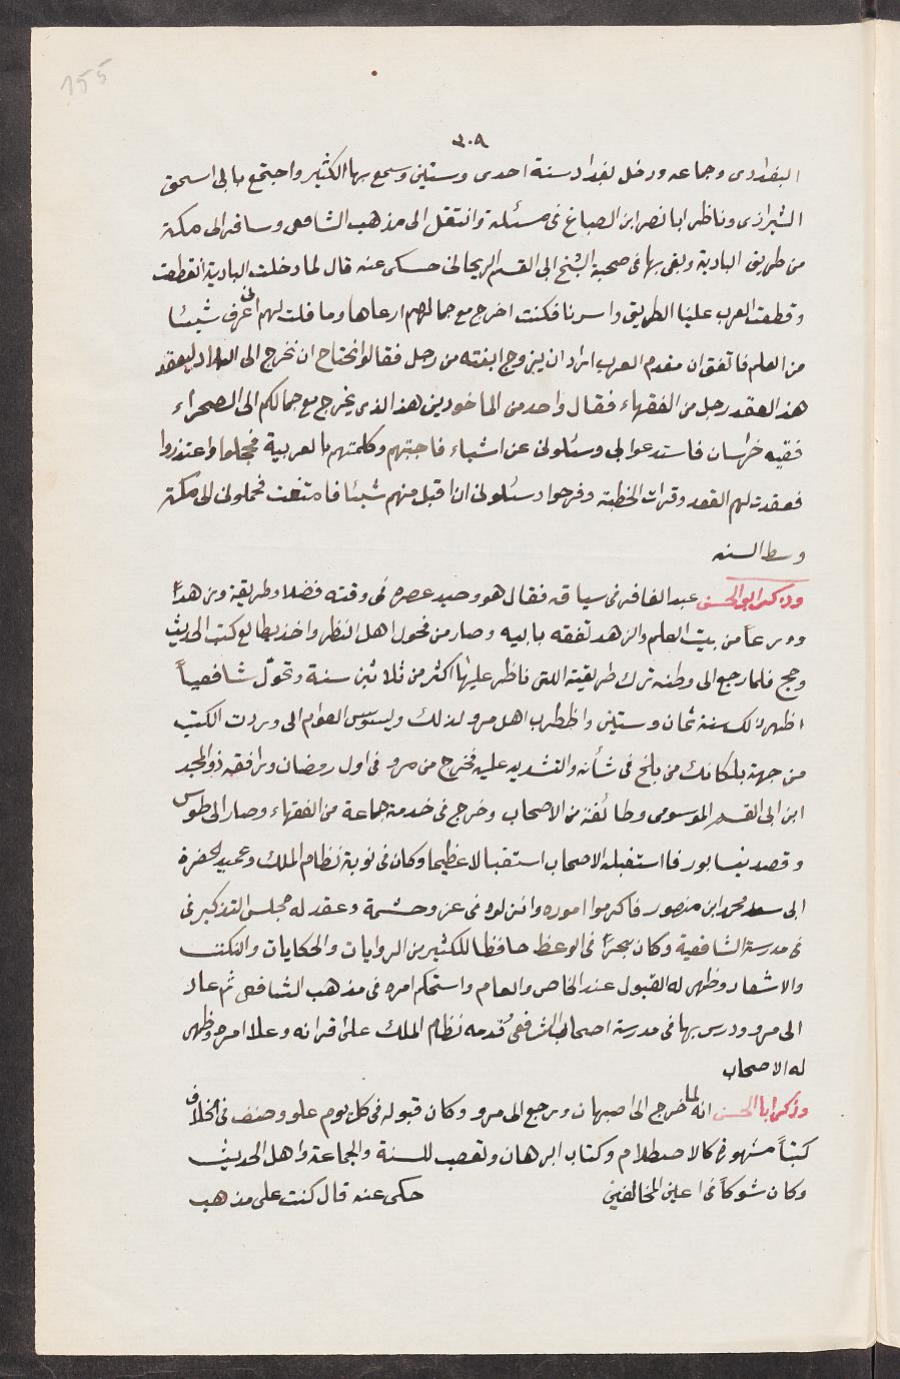 155
٣٠٩
البغدادى وجماعه ودخل بغداد سنة احدى وستين وسمع بها الكثير واجتمع بابى اسحق
الشيرازى وناظر ابا نصر ابن الصباغ فى مسئلة وانتقل الى مذهب الشافعى وسافر الى مكة
من طريق البادية وبقى بها فى صحبة الشيخ ابى القسم الريحانى حكى عنه قال لما دخلت البادية انقطعت
وقطعت العرب علينا الطريق واسرنا فكنت اخرج مع جمالهم ارعاها وما قلت لهم انى اعرف شيئا
من العلم فاتفق ان مقدم العرب اراد ان يزوج ابنته من رجل فقالوا نحتاج ان نخرج الى البلاد ليعقد
هذ العقد رجل من الفقهاء فقال واحد من الماخودين هذ الذى يخرج مع جمالكم الى الصحراء
فقيه خراسان فاستدعوا بى وسئلونى عن اشياء فاجبتهم وكلمتهم بالعربية فخجلوا واعتذروا
فعقدت لهم العقد وقرات الخطبة وفرحوا وسئلونى ان اقبل منهم شيئا فامتنعت فحملونى الى مكة
وسط السنه
وذكر ابو الحسن عبد الغافر فى سياق فقال هو وحيد عصره فى وقته فضلا وطريقة وزهداً
وورعاً من بيت العلم والزهد تفقه بابيه وصار من فحول اهل النظر واخذ يطالع كتب الحديث
وحج فلما رجع الى وطنه ترك طريقته التى ناظر عليها اكثر من ثلاثين سنة وتحوّل شافعياً
اظهر ذلك سنة ثمان وستين واظطرب اهل مرو لذلك ويسوس العوام الى وردت الكتب
من جهة بلكانك من بلخ فى شأنه والتشديد عليه فخرج من مرو فى اول رمضان ورافقه ذو المجد
ابن ابى القسم الموسوى وطائفة من الاصحاب وخرج فى خدمة جماعة من الفقهاء وصار الى طوس
وقصد نيسابور فاستقبله الاصحاب استقبالا عظيما وكان فى نوبة نظام الملك وعميد الحضرة
ابى سعد محمد ابن منصور فاكرموا اموره وانزلوه فى عز وحشمة وعقد له مجلس التذكير فى
فى مدرسة الشافعية وكان بحراً فى الوعظ حافظا للكثير من الروايات والحكايات والنكت
والاشعار وظهر له القبول عند الخاص والعام واستحكم امره فى مذهب الشافعى ثم عاد
الى مرو ودرس بها فى مدرسة اصحاب الشافعى قدمه نظام الملك على اقرانه وعلا امره وظهر
له الاصحاب
وذكر ابا الحسن انه لما خرج الى اصبهان ورجع الى مرو وكان قبوله فى كل يوم علو وصنف فى الخلاف
كتباً مشهورة كالاصطلام وكتاب البرهان وتعصب للسنة والجماعة واهل الحديث
وكان شوكاً فى اعين المخالفين حكى عنه قال كنت على مذهب